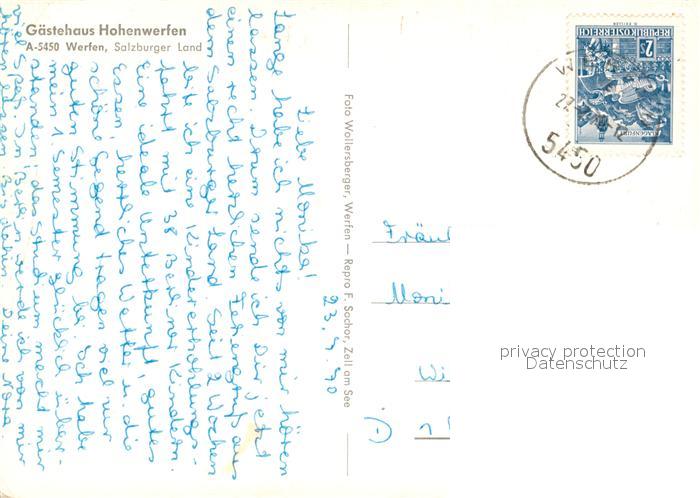 Gästehaus Hohenwerfen
A-5450 Werfen, Salzburger Land
23.4.70
Liebe Monika!
Lange habe ich nichts von mir hören
lassen. Darum sende ich Dir jetzt
einen recht herzlichen Feriengruß aus
dem Salzburger Land. Seit 2 Wochen
leite ich eine Kindererholungs-
fahrt mit 38 Berliner Kindern.
Eine ideale Unterkunft, gutes
Essen, herrliches Wetter u. die
schöne Gegend tragen viel zur
guten Stimmung bei. Ich habe
mein 1. Semester glücklich über-
standen! Das Studium macht mir
viel Spaß. In Berlin werde ich von mir
hören lassen. Bis dahin Deine
Foto Wollersberger, Werfen — Repro F. Sochor, Zell am See
REPUBLIK ÖSTERREICH
2 S
5450
Fräul
Moni
Wi
D 1
privacy protection
Datenschutz